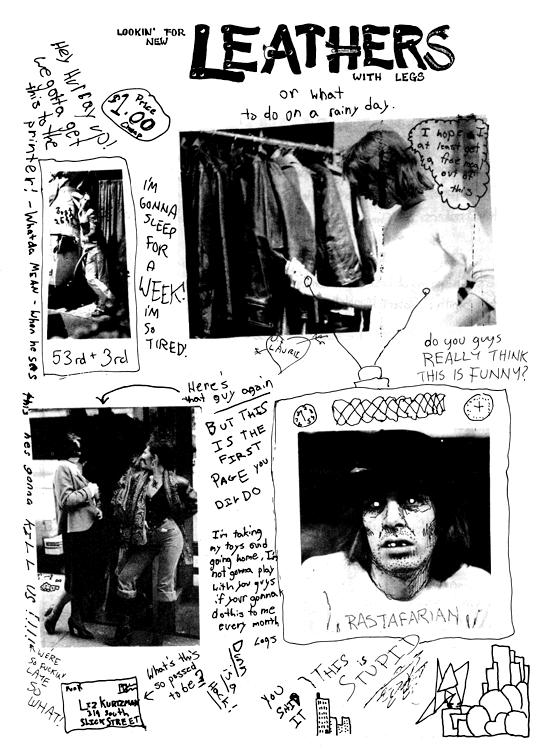 LOOKIN' FOR
NEW
LEATHERS
WITH LEGS
or what
to do on a rainy day.
Hey Hurray up!
we gotta get
this to the
printer! - Whatda MEAN - When he sees
this hes gonna KILL US!!!!
WE'RE
SO FUCKIN'
LATE
SO
WHAT!
Price
$1.00
Cheap
I hope I
at least get
a free mag
out of
this
I'M
GONNA
SLEEP
FOR
A
WEEK!
I'M
SO
TIRED!
53rd + 3rd
LAURIE
do you guys
REALLY THINK
THIS IS FUNNY?
Here's
that guy again
BUT THIS
IS THE
FIRST
PAGE you
DILDO
I'm taking
my toys and
going home, I'm
not gonna play
with you guys
if your gonna
do this to me
every month
Legs
Dunn
is a
Hack!
RASTAFARIAN
What's this
so possed
to be?
PUNK
LIZ KURTZMAN
319 South
SLICK STREET
YOU
SHIP
IT
THIS is
STUPID